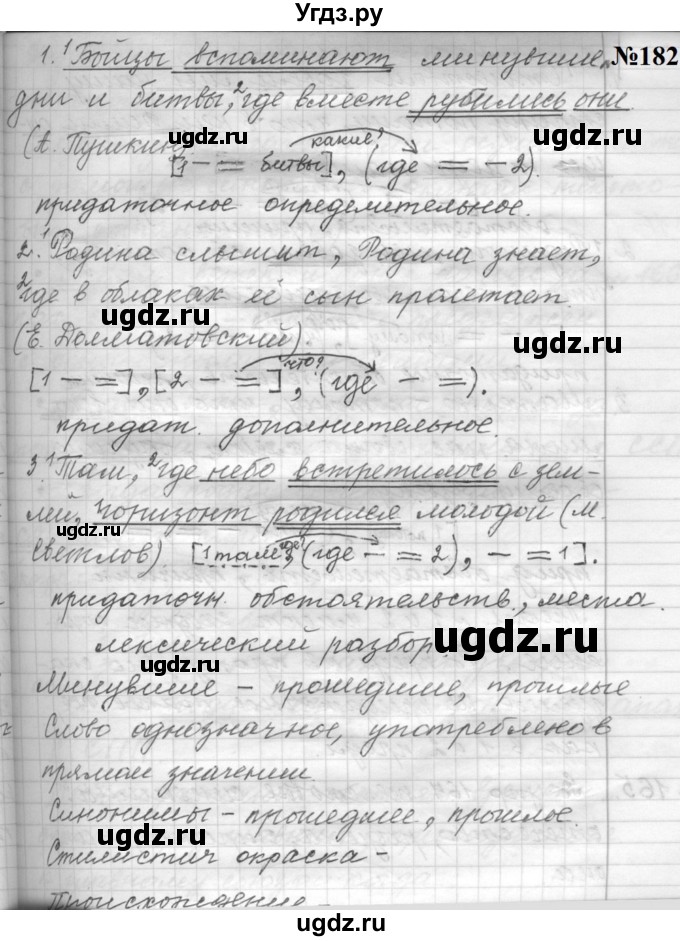 Угдз.ру
№182
1. ¹Бойцы вспоминают минувшие
дни и битвы, ²где вместе рубились они.
(А. Пушкин)
какие?
[1 – = битвы], (где = – 2).
придаточное определительное.
2. ¹Родина слышит, Родина знает,
²где в облаках её сын пролетает.
(Е. Долматовский).
что?
[1 – =], [2 – =], (где – =).
придат. дополнительное.
3. ¹Там, ²где небо встретилось с зем-
лей, ¹горизонт родился молодой (М.
Светлов).
где?
[1 там, (где – = 2), – = 1].
придаточн. обстоятельств., места.
лексический разбор.
Минувшие – прошедшие, прошлые
Слово однозначное, употреблено в
прямом значении.
Синонимы – прошедшее, прошлое.
Стилистич окраска –
Происхождение –
ugdz.ru
ugdz.ru
ugdz.ru
ugdz.ru
ugdz.ru
ugdz.ru
ugdz.ru
ugdz.ru
ugdz.ru
ugdz.ru
ugdz.ru
ugdz.ru
ugdz.ru